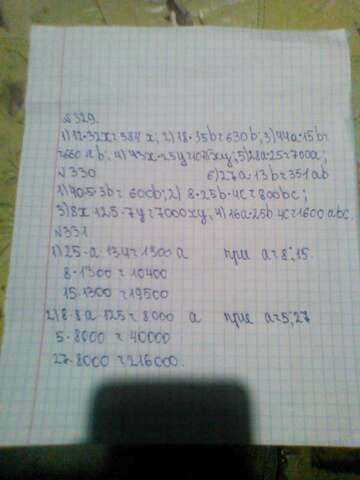 №329.
1) 12·32x=384x; 2) 18·35b=630b; 3) 44a·15b=
=660ab; 4) 43x·25y=1075xy; 5) 28a·25=700a;
№330 6) 27a·13b=351ab
1) 40·5·3b=600b; 2) 8·25b·4c=800bc;
3) 8x·125·7y=7000xy; 4) 16a·25b·4c=1600abc
№331
1) 25·a·134=1300a при a=8; 15.
8·1300=10400
15·1300=19500
2) 8·8a·125=8000 a при a=5; 27
5·8000=40000
27·8000=216000.